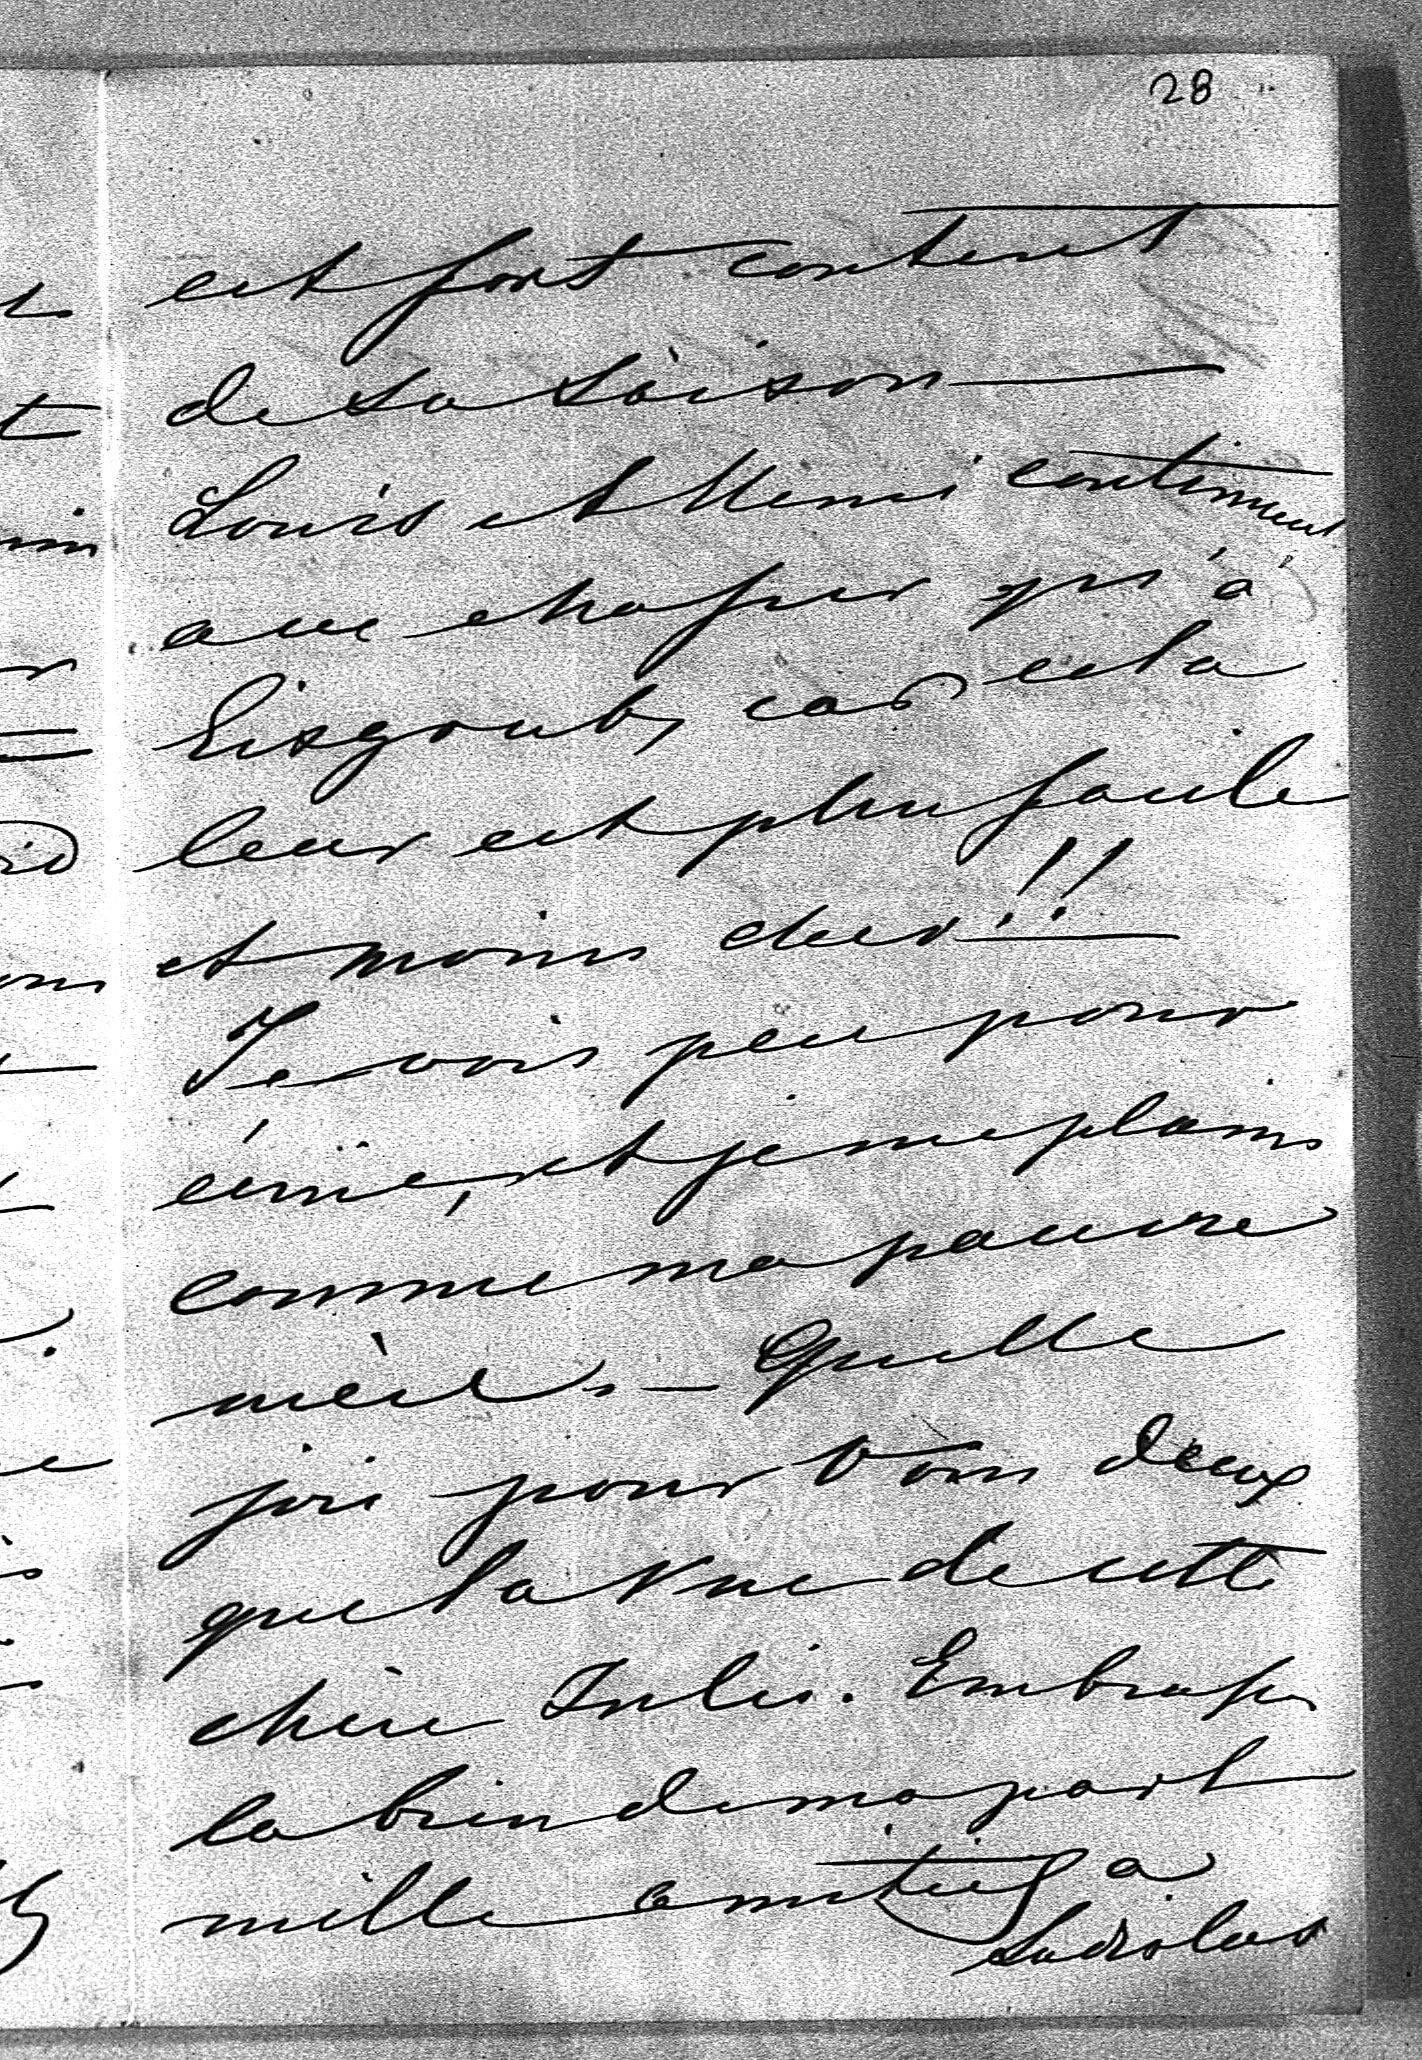 28
est fort content
de sa sàison —
Louis et Mimi continuent
avec chasser qu'à
Eisgrub, car cela
leur est plus facile
et moins cher!! —
Je vois peu pour
et je me plains
comme ma pauvre
mère. — Quelle
joie pour vous deux
que la vue de cette
chère Julie. Embrasse
la bien de ma part
mille amitiés à
Ladislas